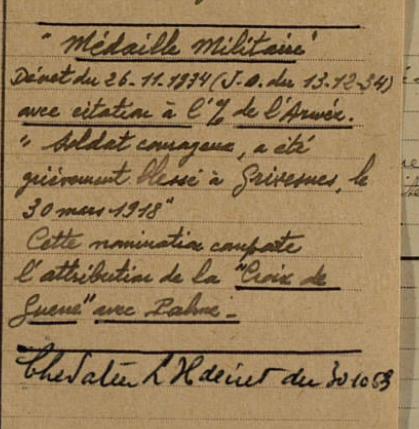 "Médaille Militaire"
Décret du 26.11.1934 (J.O. du 13.12.34)
avec citation à l'% de l'Armée.
"Soldat courageux, a été
grièvement blessé à Grivesnes, le
30 mars 1918"
Cette nomination comporte
l'attribution de la "Croix de
Guerre" avec Palme.
Chevalier L H décret du 30 10 63